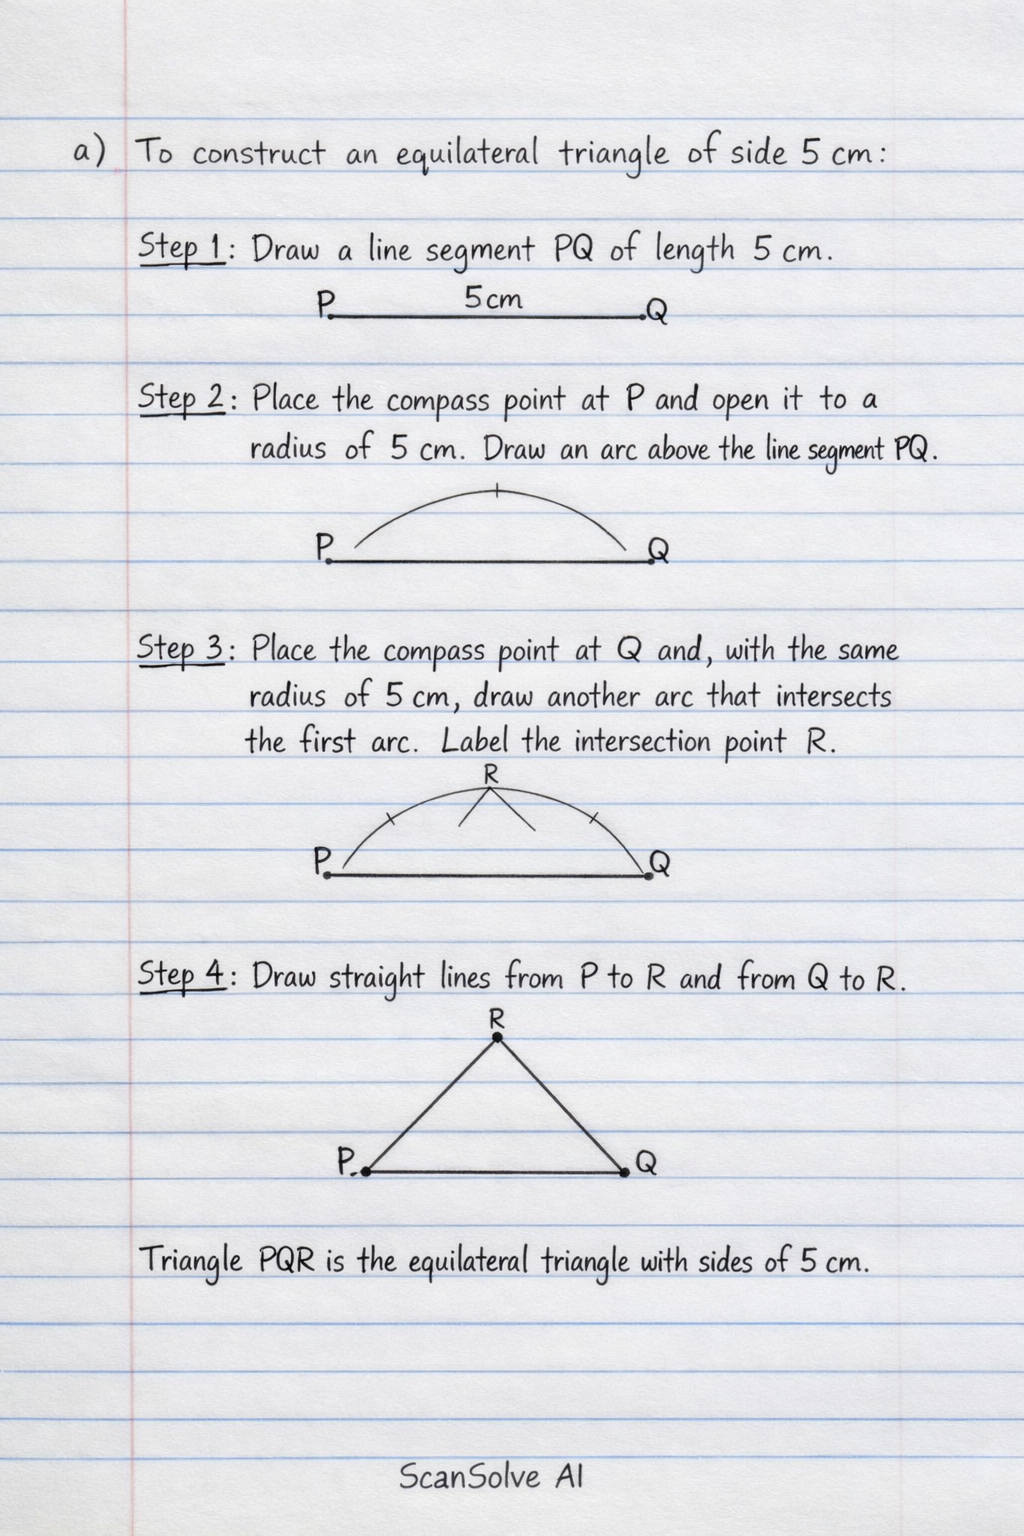 a) To construct an equilateral triangle of side 5 cm:
Step 1: Draw a line segment PQ of length 5 cm.
P 5cm Q
Step 2: Place the compass point at P and open it to a
radius of 5 cm. Draw an arc above the line segment PQ.
P Q
Step 3: Place the compass point at Q and, with the same
radius of 5 cm, draw another arc that intersects
the first arc. Label the intersection point R.
R
P Q
Step 4: Draw straight lines from P to R and from Q to R.
R
P. Q
Triangle PQR is the equilateral triangle with sides of 5 cm.
ScanSolve AI